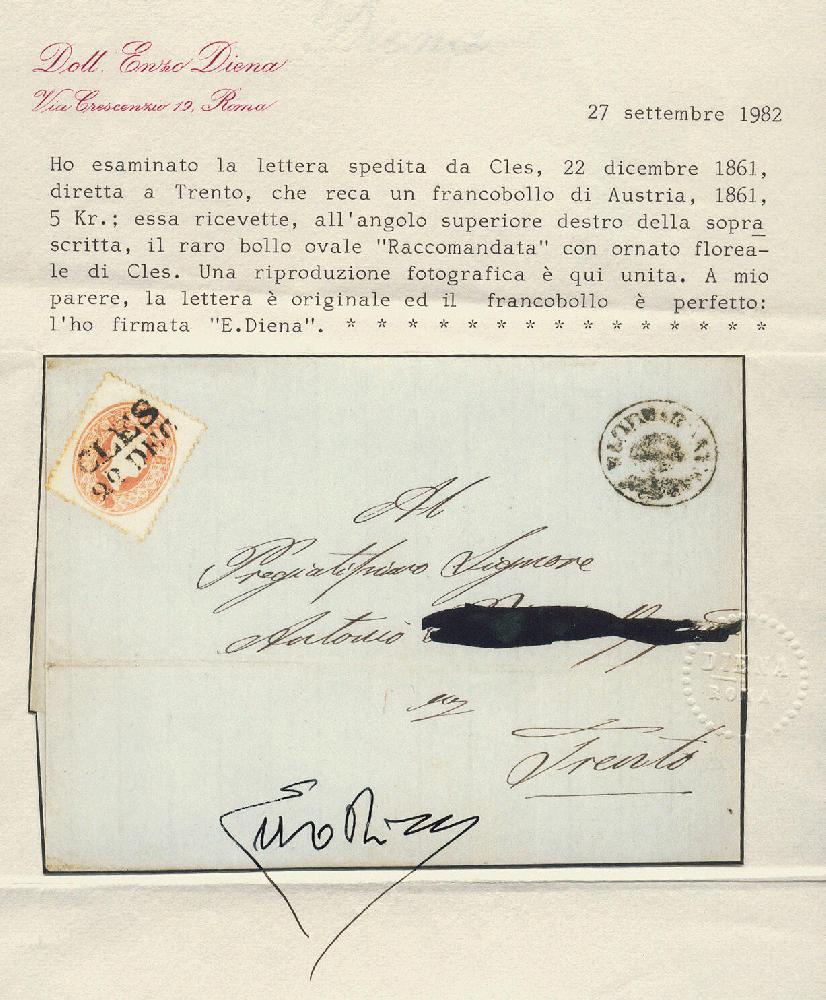 Dott. Enzo Diena
Via Crescenzio 19, Roma
27 settembre 1982
Ho esaminato la lettera spedita da Cles, 22 dicembre 1861,
diretta a Trento, che reca un francobollo di Austria, 1861,
5 Kr.; essa ricevette, all'angolo superiore destro della sopra
scritta, il raro bollo ovale "Raccomandata" con ornato florea-
le di Cles. Una riproduzione fotografica è qui unita. A mio
parere, la lettera è originale ed il francobollo è perfetto:
l'ho firmata "E.Diena". * * * * * * * * * * * * * * *
CLES
22 DEC
Al
Pregiatissimo Signore
Antonio
Trento
DIENA
ROMA